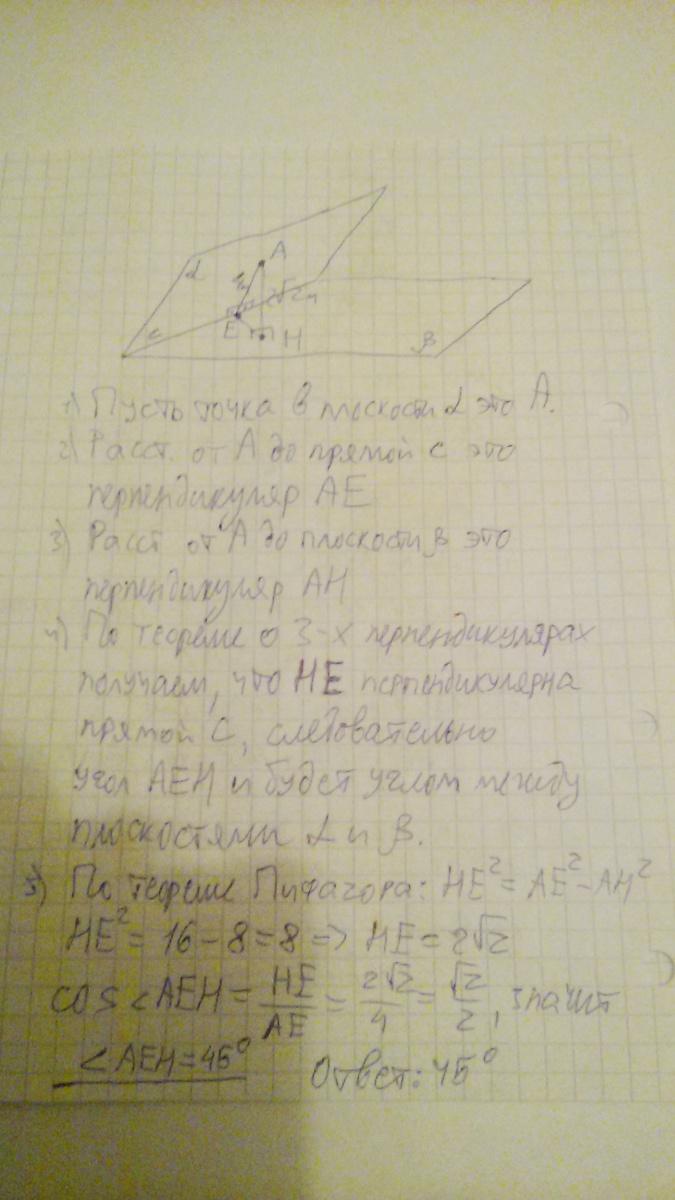 α
A
4м
2√2м
E
H
c
β
1) Пусть точка в плоскости α это A.
2) Расст. от A до прямой c это
перпендикуляр AE
3) Расст от A до плоскости β это
перпендикуляр AH
4) По теореме о 3-х перпендикулярах
получаем, что HE перпендикулярна
прямой C, следовательно
угол AEH и будет углом между
плоскостями α и β.
5) По теореме Пифагора: HE² = AE² - AH²
HE² = 16 - 8 = 8 => HE = 2√2
cos <AEH = HE/AE = 2√2/4 = √2/2, значит
<AEH = 45°   Ответ: 45°